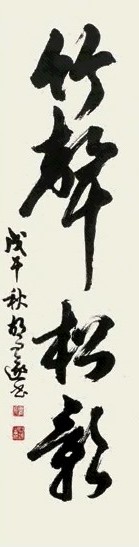 竹聲松影
戊午秋